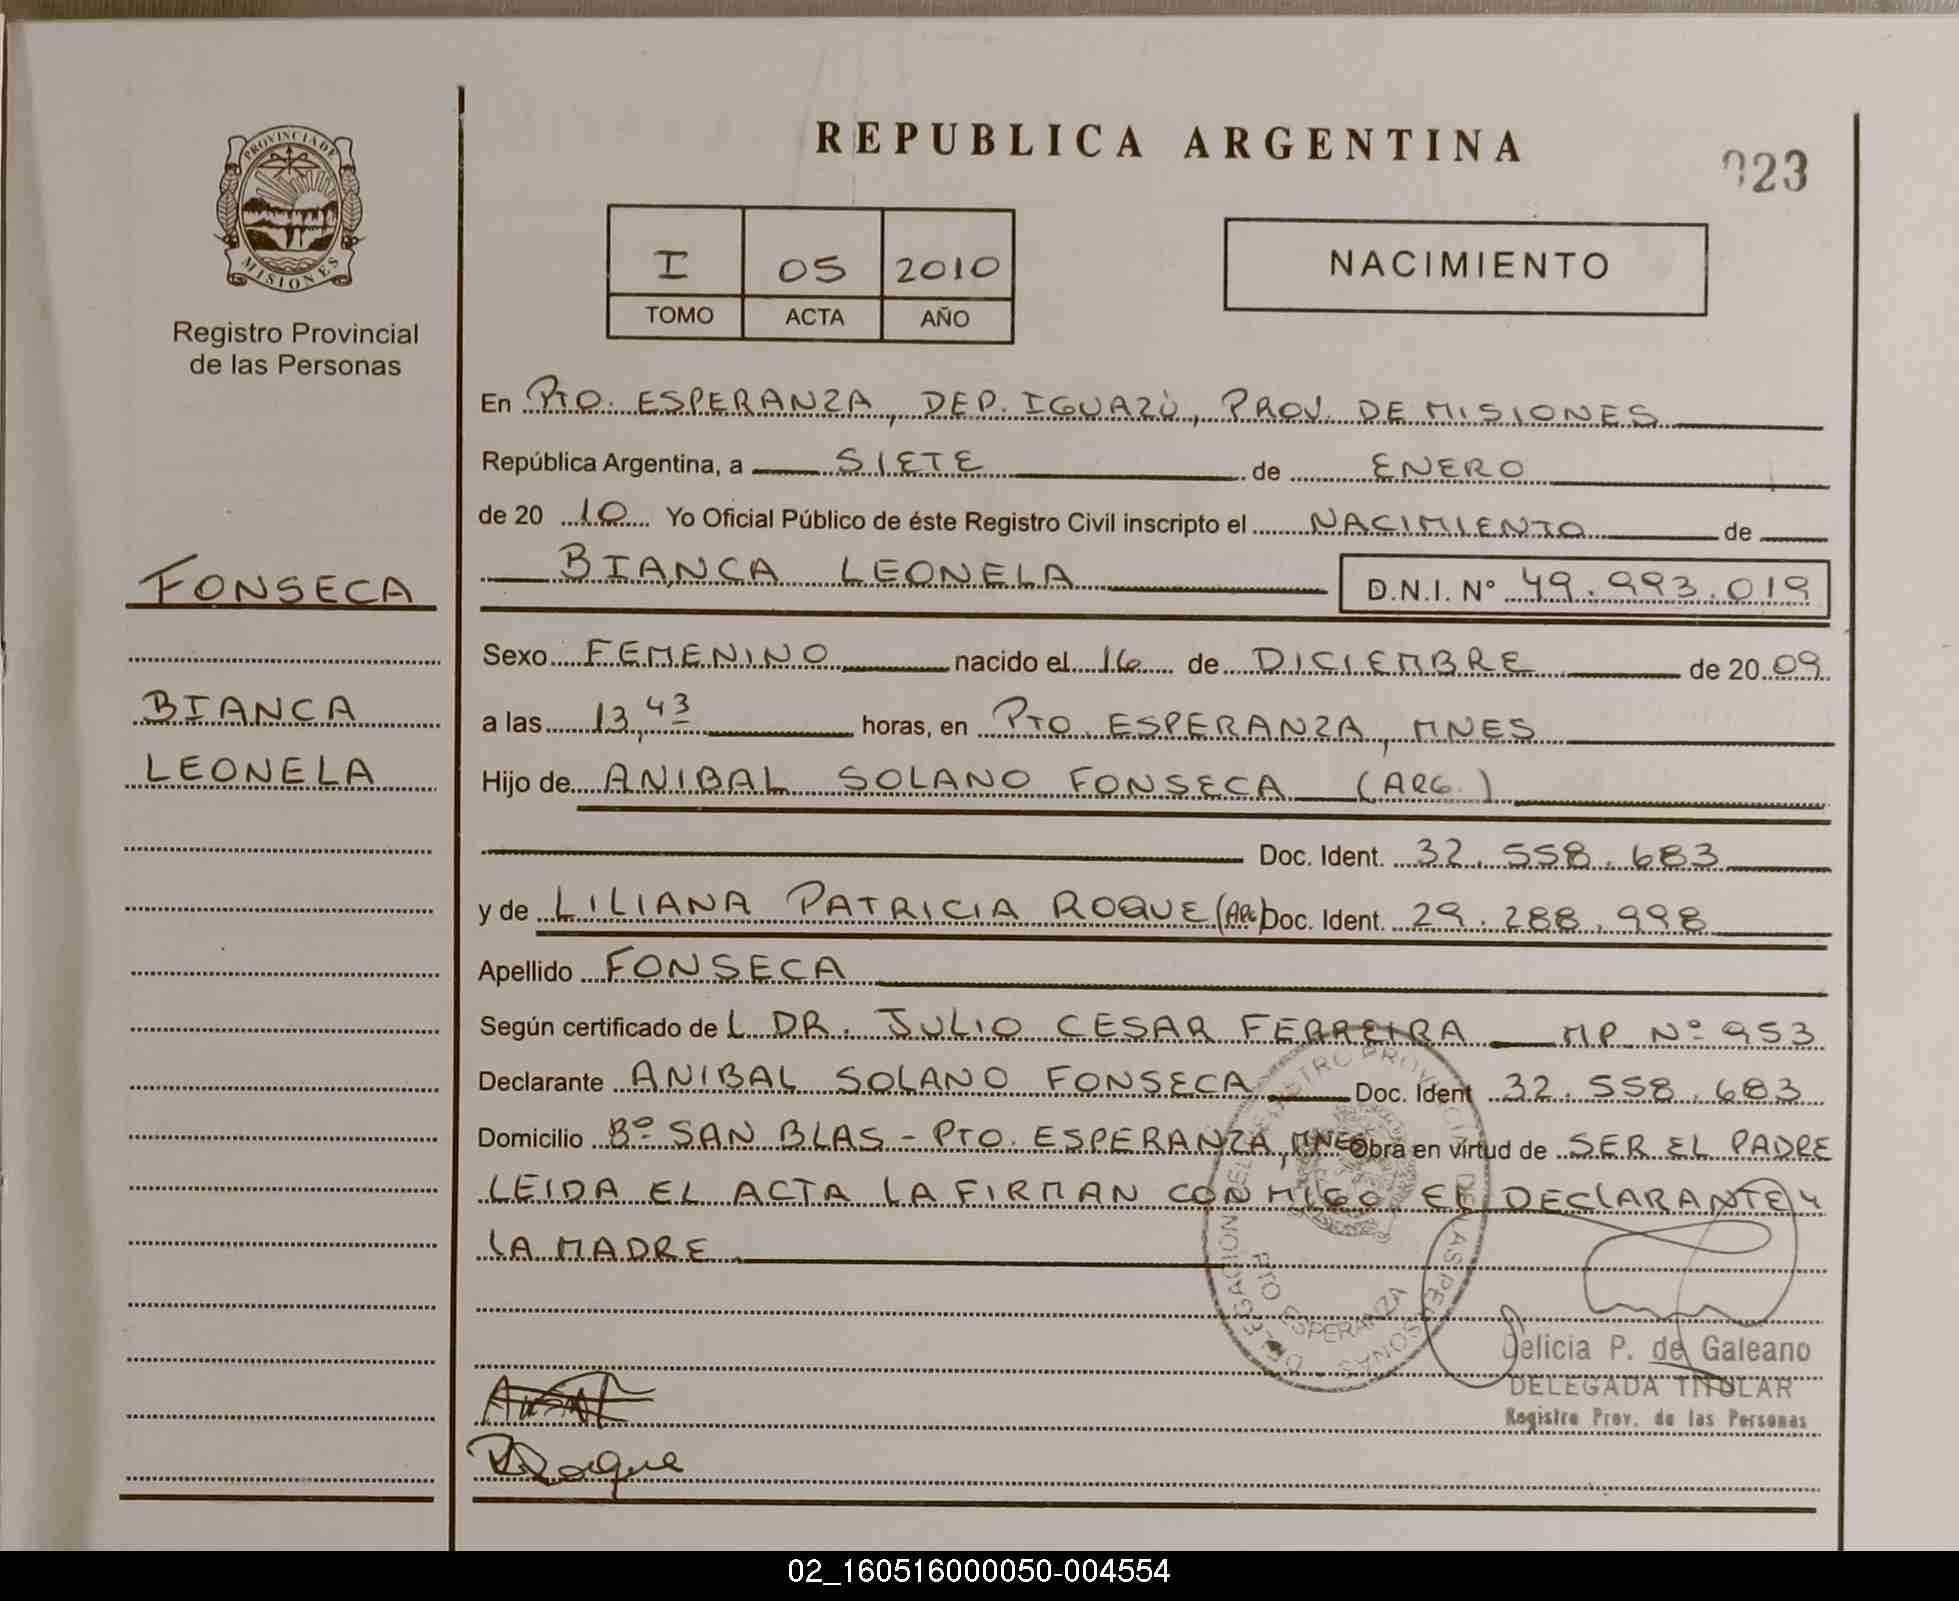 REPUBLICA ARGENTINA
023
PROVINCIA DE
MISIONES
Registro Provincial
de las Personas
I 05 2010
TOMO ACTA AÑO
NACIMIENTO
En PTO. ESPERANZA, DEP. IGUAZÚ, PROV. DE MISIONES
República Argentina, a SIETE de ENERO
de 20 10 Yo Oficial Público de éste Registro Civil inscripto el NACIMIENTO de
BIANCA LEONELA D.N.I. N° 49.993.019
FONSECA
BIANCA
LEONELA
Sexo FEMENINO nacido el 16 de DICIEMBRE de 20 09
a las 13,43 horas, en PTO. ESPERANZA, MNES
Hijo de ANIBAL SOLANO FONSECA (ARG.)
Doc. Ident. 32.558.683
y de LILIANA PATRICIA ROQUE (ARG) Doc. Ident. 29.288.998
Apellido FONSECA
Según certificado de L DR. JULIO CESAR FERREIRA MP Nº 953
Declarante ANIBAL SOLANO FONSECA Doc. Ident 32.558.683
Domicilio Bº SAN BLAS - PTO. ESPERANZA, MNES Obra en virtud de SER EL PADRE
LEIDA EL ACTA LA FIRMAN CONMIGO EL DECLARANTE Y
LA MADRE
DELEGACION DEL REGISTRO PROVINCIAL DE LAS PERSONAS
PTO ESPERANZA
Delicia P. de Galeano
DELEGADA TITULAR
Registro Prov. de las Personas
Roque
02_160516000050-004554